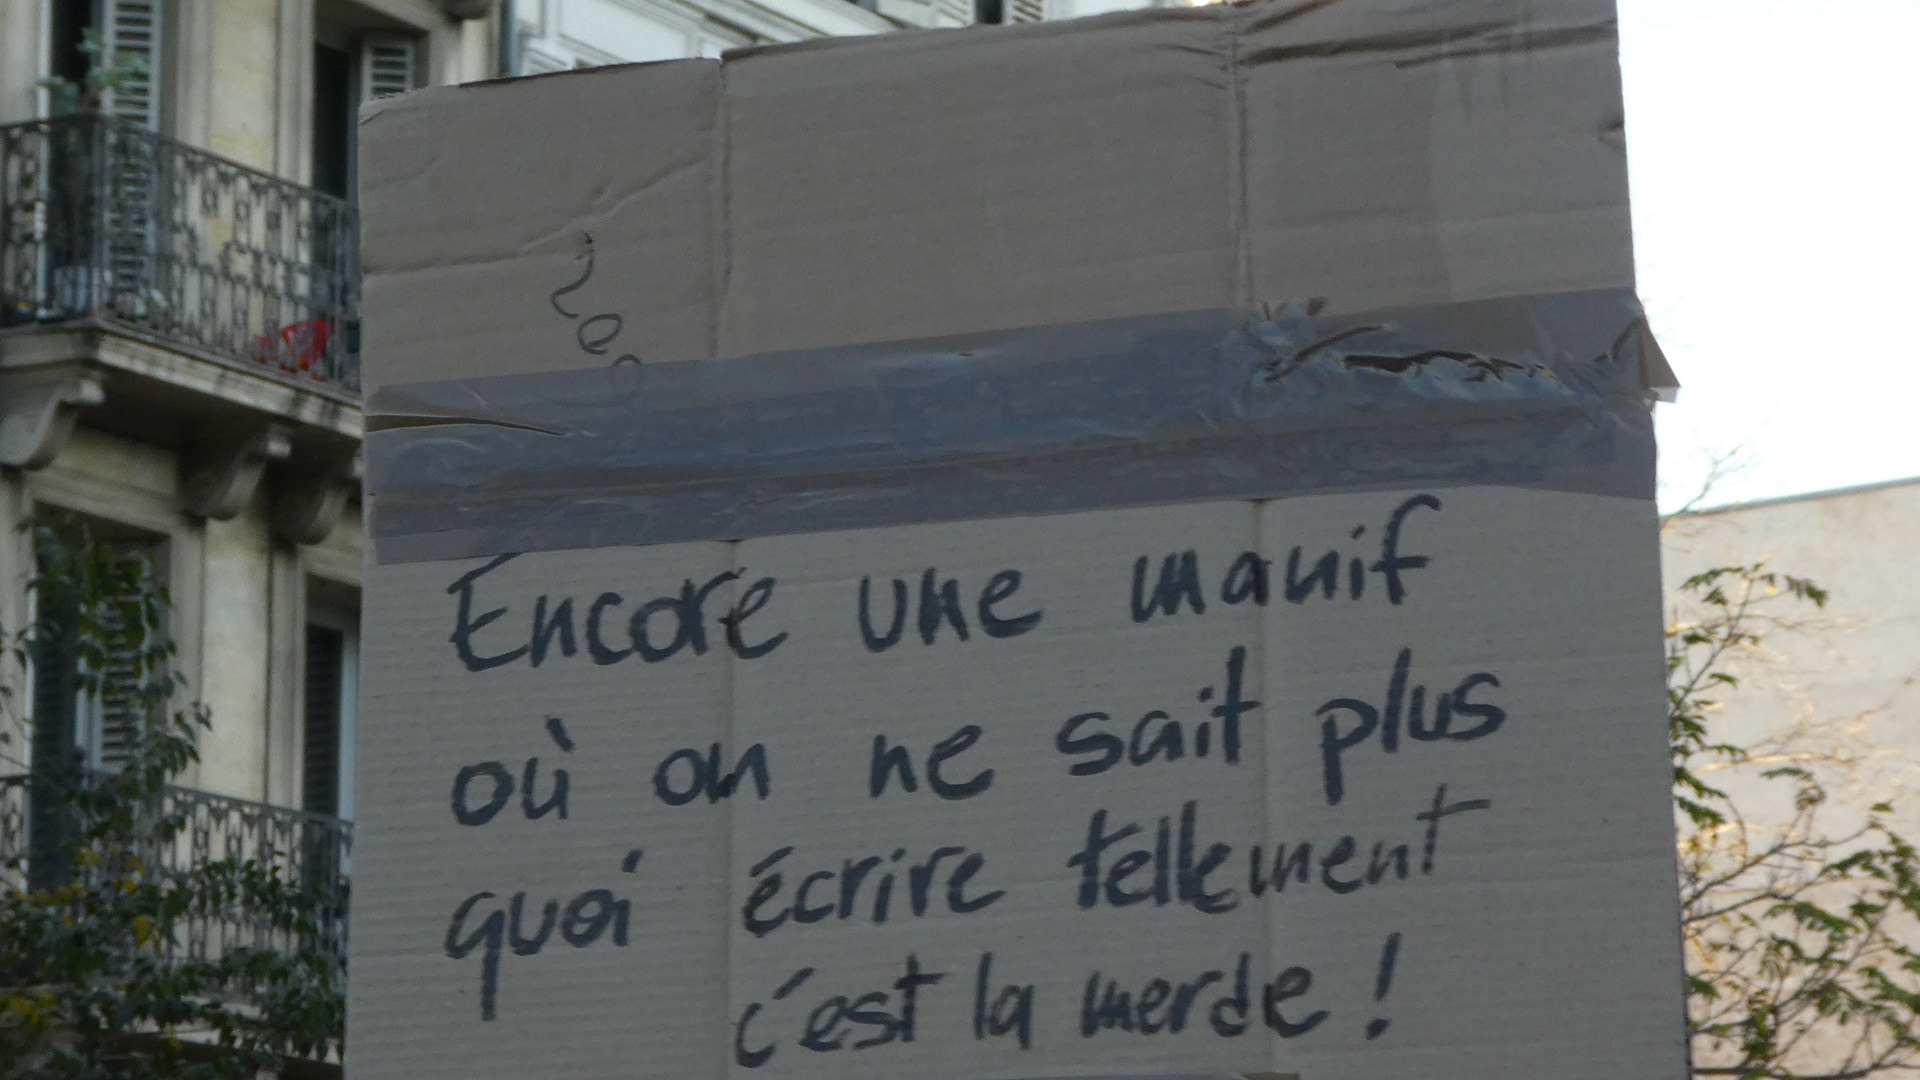 Encore une manif
où on ne sait plus
quoi écrire tellement
c'est la merde !